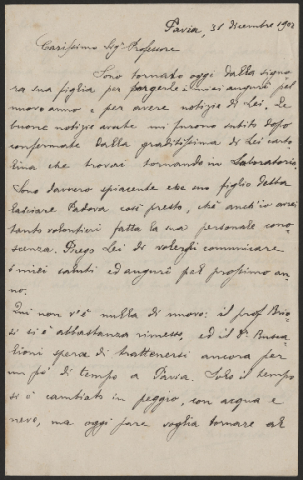 Pavia, 31 dicembre 1902
Carissimo Sigr Professore
Sono tornato oggi dalla signo
ra sua figlia per porgerle i miei auguri pel
nuovo anno e per avere notizie di Lei. Le
buone notizie avute mi furono subito dopo
confermate dalla graditissima di Lei carto
lina che trovai tornando in Laboratorio.
Sono davvero spiacente che suo figlio debba
lasciare Padova così presto, chè anch'io avrei
tanto volontieri fatta la sua personale cono-
scenza. Prego Lei di volergli comunicare
i miei saluti ed auguri pel prossimo an-
no.
Qui non v'è nulla di nuovo: il prof. Brio
si si è abbastanza rimesso, ed il Dr Busca
lioni spera di trattenersi ancora per
un po' di tempo a Pavia. Solo il tempo
si è cambiato in peggio, con acqua e
neve, ma oggi pare voglia tornare al